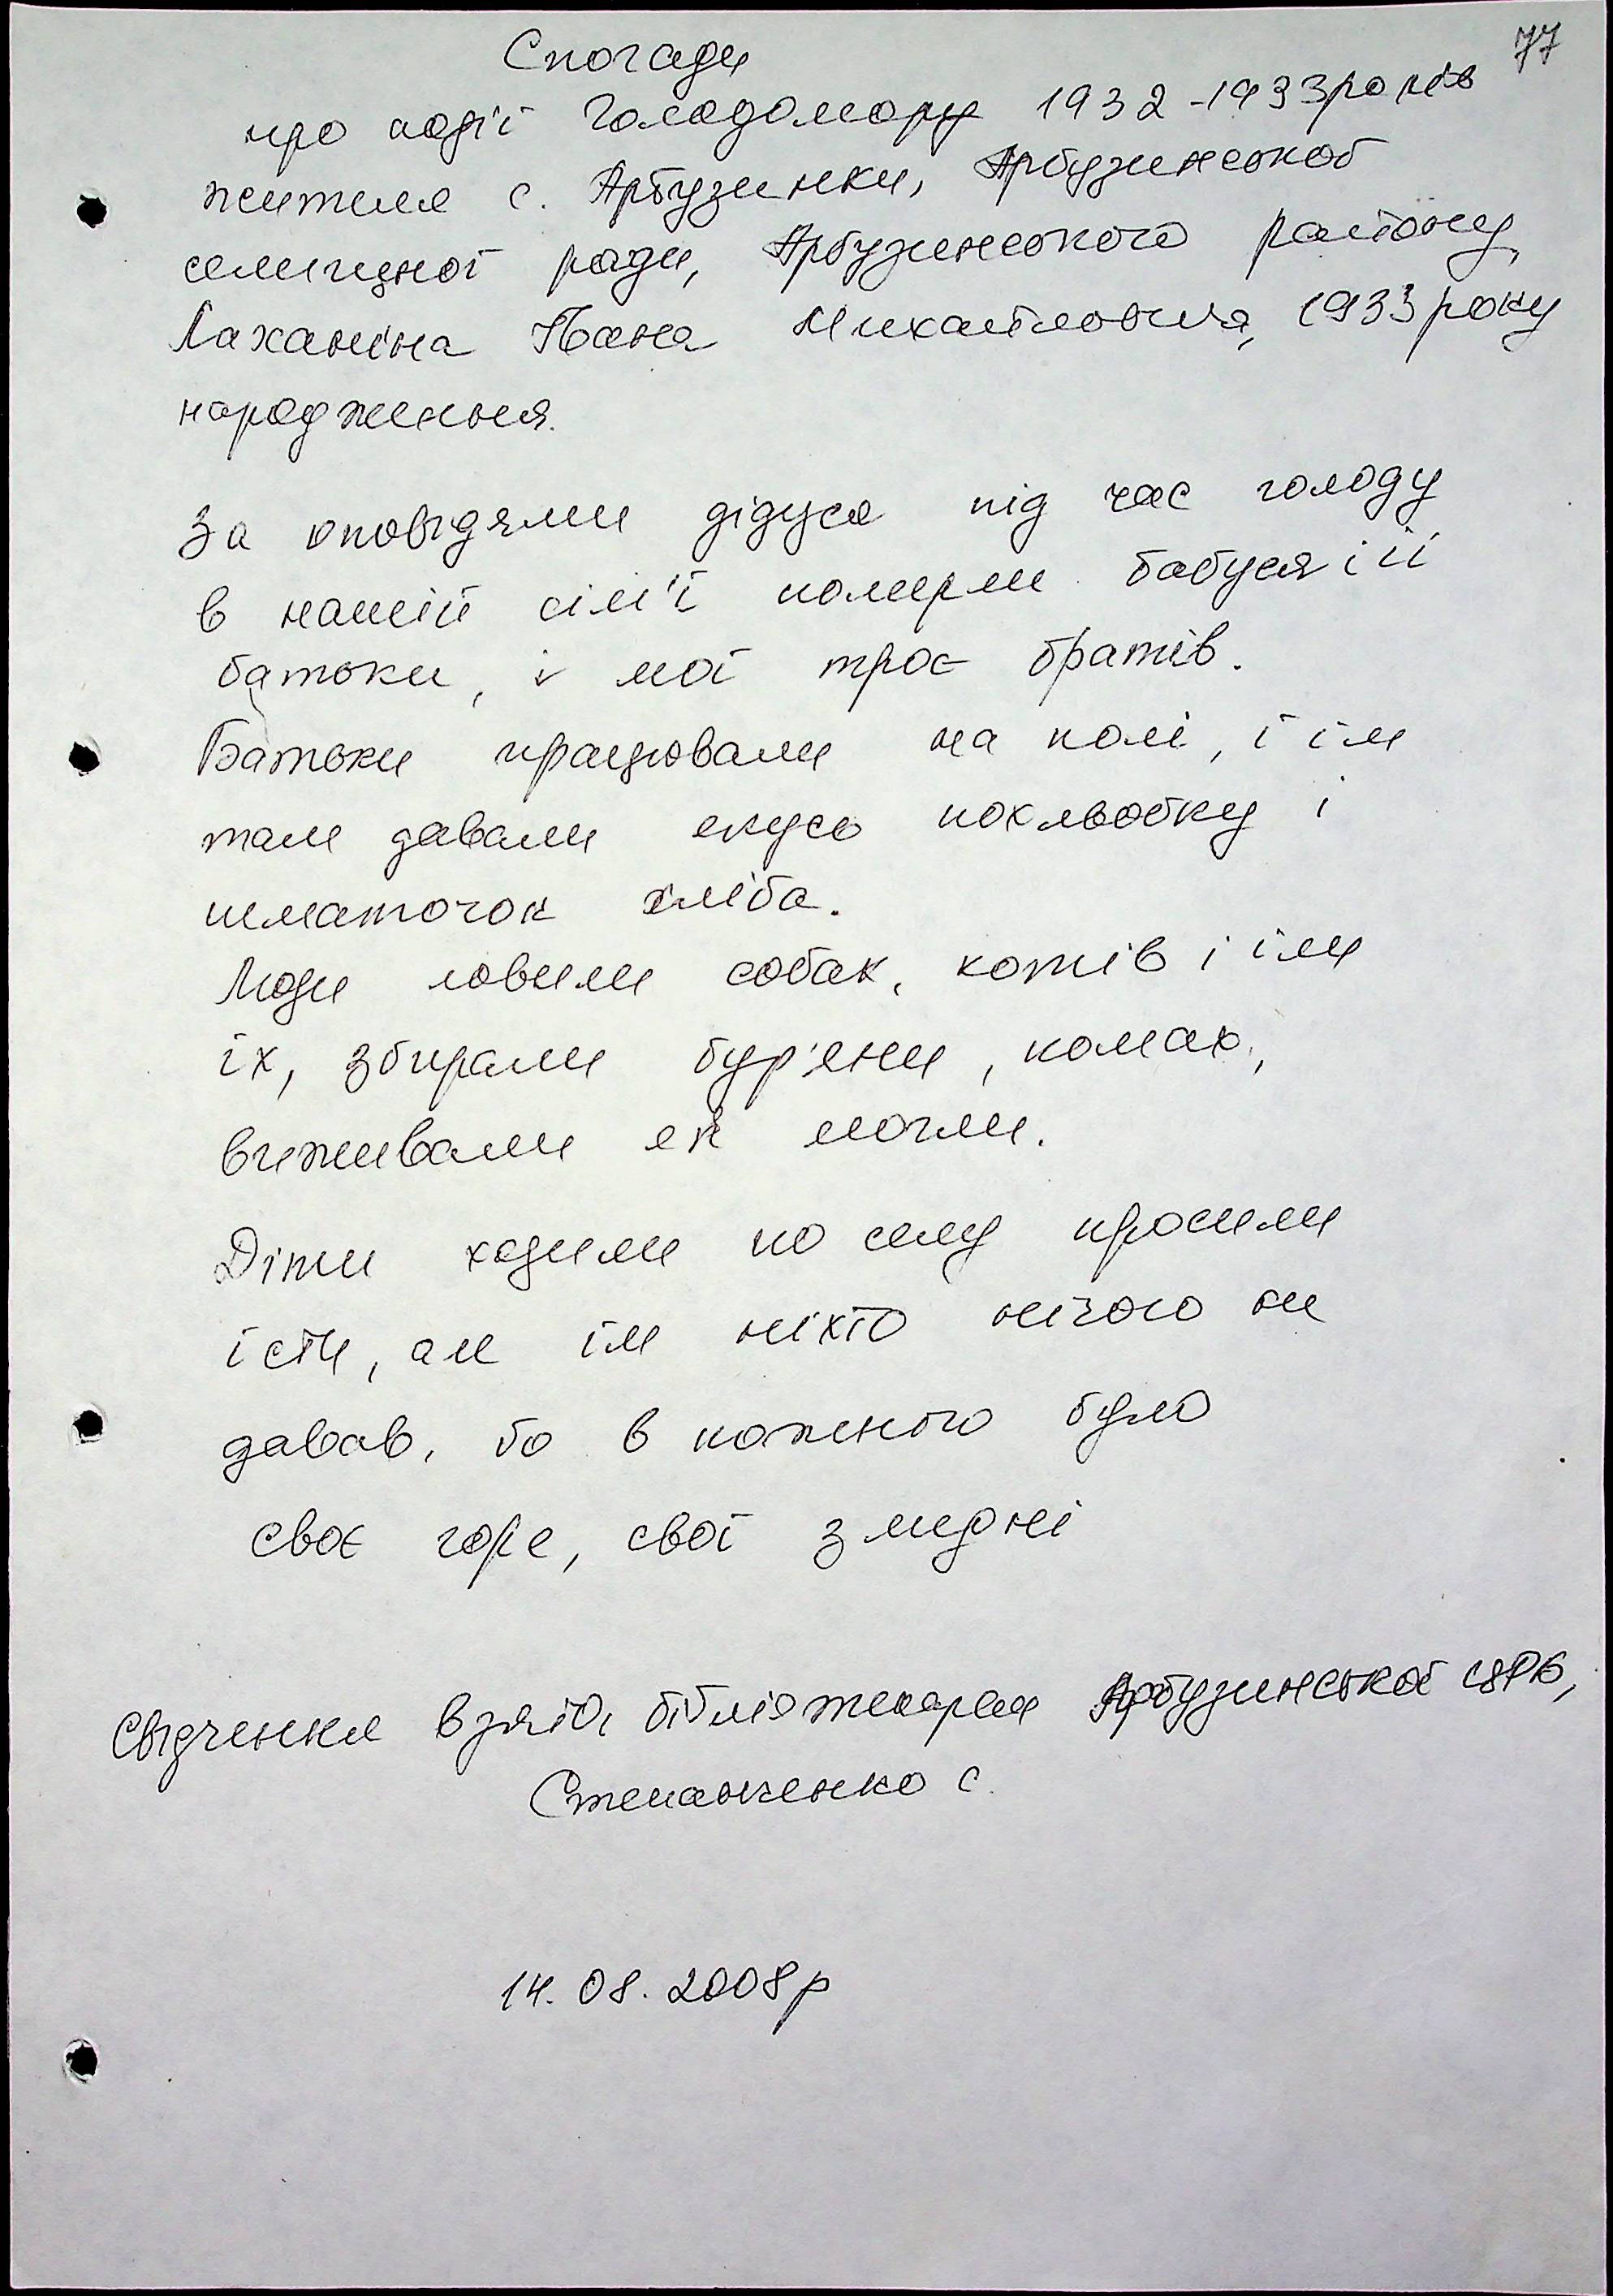 77
Спогади
про події Голодомору 1932-1933 років
жителя с. Арбузинки, Арбузинської
селищної ради, Арбузинського району,
Лаханіна Івана Михайловича, 1933 року
народження.
За оповідями дідуся під час голоду
в нашій сім'ї померли бабуся і її
батьки, і мої троє братів.
Батьки працювали на полі, і їм
там давали якусь похльобку і
шматочок хліба.
Люди ловили собак, котів і їли
їх, збирали бур'яни, комах,
виживали як могли.
Діти ходили по селу просили
їсти, але їм ніхто нічого не
давав, бо в кожного було
своє горе, свої злидні
Свідчення взято, бібліотекарем Арбузинської ЦРБ,
Степанченко С.
14.08.2008р